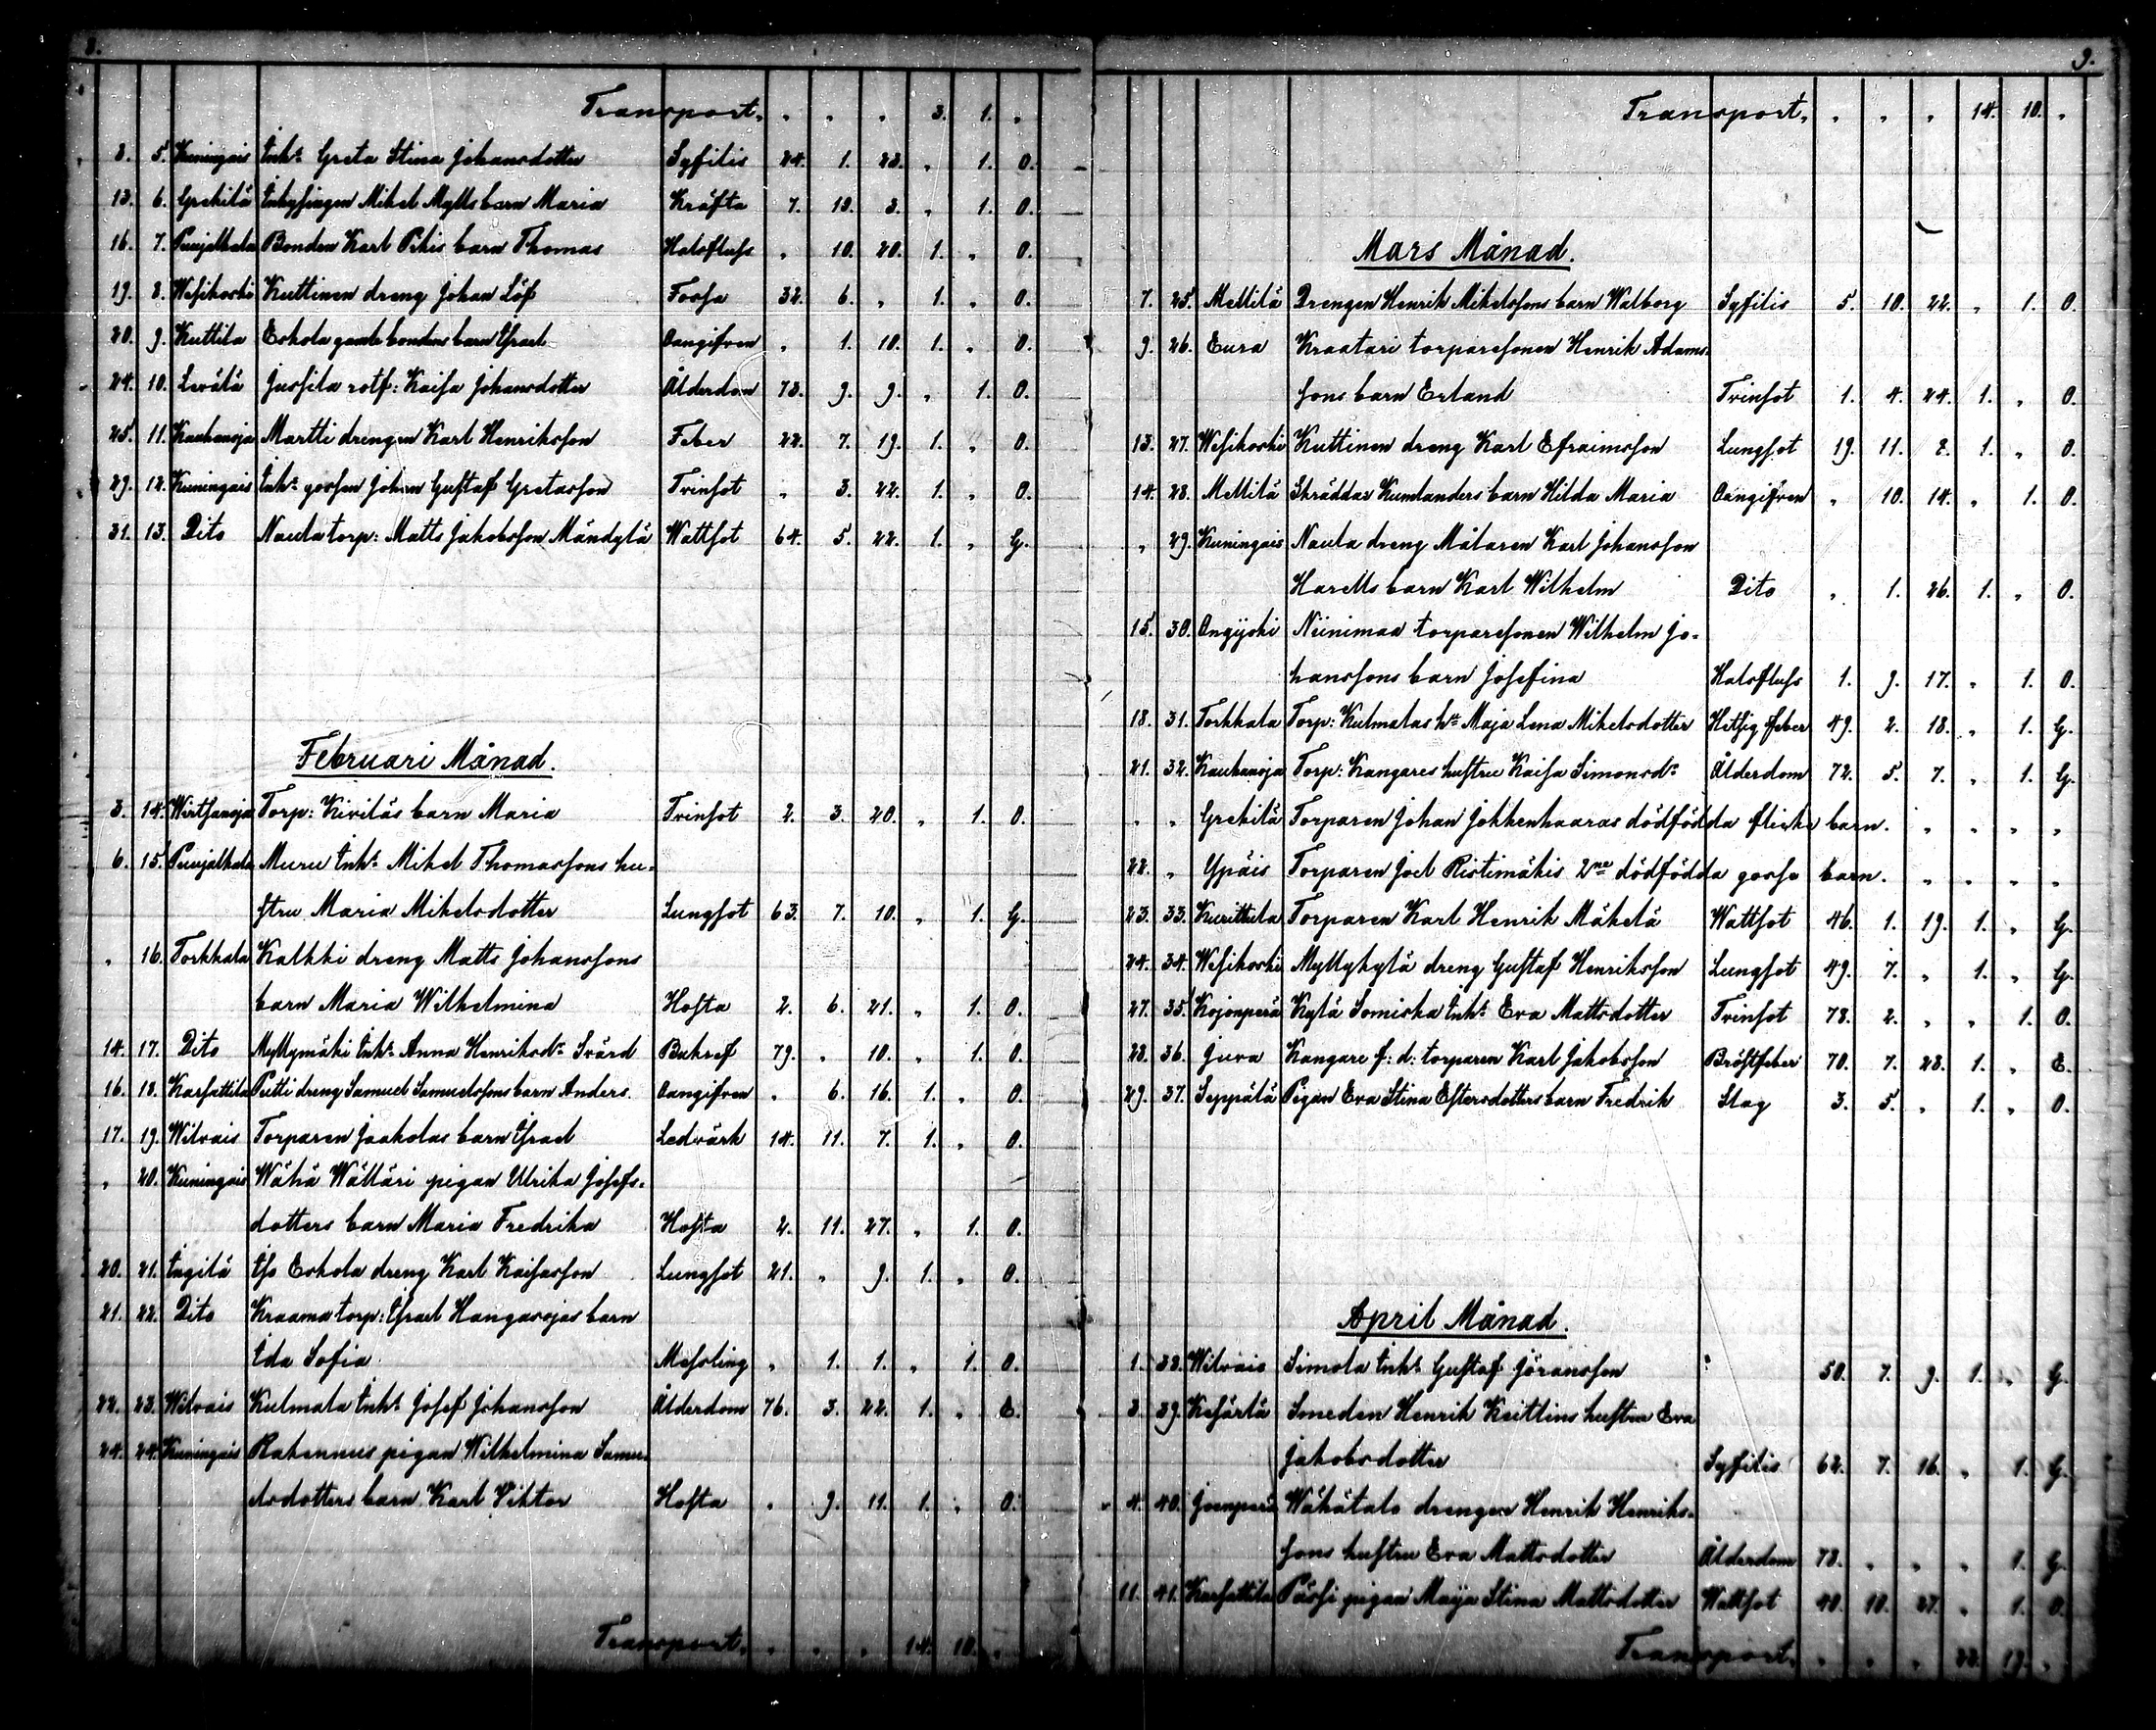 8.
Transport. " " " 3. 1. "
8. 5. Kuningais Inhs Greta Stina Johansdotter Syfilis 24. 1. 23. " 1. O.
13. 6. Grekilä Inhysingen Mikel Mylls barn Maria Kräfta 7. 10. 3. " 1. O.
16. 7. Punjalkala Bonden Karl Pikis barn Thomas Halsflufs " 10. 20. 1. " O.
19. 8. Wesikoski Kuttinen dreng Johan Löf Fossa 32. 6. " 1. " O.
20. 9. Kuttila Eskola gamle bondens barn Israel Oangifven " 1. 10. 1. " O.
24. 10. Levälä Jussila rotf: Kaisa Johansdotter Ålderdom 73. 9. 9. " 1. O.
25. 11. Kauhanoja Martti drengen Karl Henriksson Feber 22. 7. 19. 1. " O.
29. 12. Kuningais Inhs gossen Johan Gustaf Gretasson Tvinsot " 3. 22. 1. " O.
31. 13. Dito Nauta torp: Matts Jakobsson Mändylä Wattsot 64. 5. 22. 1. " G.
Februari Månad.
3. 14. Wirtsanoja Torp: Kiviläs barn Maria Tvinsot 2. 3. 20. " 1. O.
6. 15. Punjalkala Muru Inhs Mikel Thomassons hu-
stru Maria Mikelsdotter Lungsot 63. 7. 10. " 1. G.
" 16. Torkkala Kalkki dreng Matts Johanssons
barn Maria Wilhelmina Hosta 2. 6. 21. " 1. O.
14. 17. Dito Myllymäki Inhs Anna Henriksdr Svärd Bukref 79. " 10. " 1. O.
16. 18. Karsattila Putti dreng Samuel Samuelssons barn Anders. Oangifven " 6. 16. 1. " O.
17. 19. Wilvais Torparen Jaakolas barn Israel Ledvärk 14. 11. 7. 1. " O.
" 20. Kuningais Wähä Wällari pigan Ulrika Josefs-
dotters barn Maria Fredrika Hosta 2. 11. 27. " 1. O.
20. 21. Ingilä Iso Eskola dreng Karl Kaisasson Lungsot 21. " 9. 1. " O.
21. 22. Dito Kraama torp: Israel Hangasojas barn
Ida Sofia Messling " 1. 1. " 1. O.
22. 23. Wilvais Kulmala Inhs Josef Johansson Ålderdom 76. 3. 22. 1. " E.
24. 24. Kuningais Rakennus pigan Wilhelmina Samu-
elsdotters barn Karl Viktor Hosta " 9. 11. 1. " O.
Transport. " " " 14. 10. "
9.
Transport. " " " 14. 10. "
Mars Månad.
7. 25. Mellilä Drengen Henrik Mikelssons barn Walborg Syfilis 5. 10. 22. " 1. O.
9. 26. Eura Kraatari torparesonen Henrik Adams-
sons barn Erland Tvinsot 1. 4. 24. 1. " O.
13. 27. Wesikoski Kuttinen dreng Karl Efraimsson Lungsot 19. 11. 2. 1. " O.
14. 28. Mellilä Skräddar Kumlanders barn Hilda Maria Oangifven " 10. 14. " 1. O.
" 29. Kuningais Nauta dreng Målaren Karl Johansson
Harells barn Karl Wilhelm Dito " 1. 26. 1. " O.
15. 30. Onijoki Niinimaa torparesonen Wilhelm Jo-
hanssons barn Josefina Halsflufs 1. 9. 17. " 1. O.
18. 31. Torkkala Torp: Kulmalas hu Maja Lena Mikelsdotter Hitsig feber 49. 2. 18. " 1. G.
21. 32. Kauhanoja Torp: Kangares hustru Kaisa Simonsdr Ålderdom 72. 5. 7. " 1. G.
" " Grekilä Torparen Johan Jokkenhaaras dödfödda flicke barn. " " " "
22. " Ypäis Torparen Joel Ristimäkis 2ne dödfödda gosse barn. " " " "
23. 33. Kurittula Torparen Karl Henrik Mäkelä Wattsot 46. 1. 19. 1. " G.
24. 34. Wesikoski Myllykylä dreng Gustaf Henriksson Lungsot 49. 7. " 1. " G.
27. 35. Kojonperä Kylä Somiska Inhs Eva Mattsdotter Tvinsot 78. 2. " " 1. O.
28. 36. Juva Kangare f: d: torparen Karl Jakobsson Bröstfeber 70. 7. 28. 1. " E.
29. 37. Seppälä Pigan Eva Stina Estersdotters barn Fredrik Slag 3. 5. " 1. " O.
April Månad.
1. 38. Wilvais Simola Inhs Gustaf Jöransson ? 50. 7. 9. 1. " G.
3. 39. Kesärlä Smeden Henrik Keittins hustru Eva
Jakobsdotter Syfilis 62. 7. 16. " 1. G.
4. 40. Joenperä Wähätalo drengen Henrik Henriks-
sons hustru Eva Mattsdotter Ålderdom 78. " " " 1. G.
11. 41. Karsattila Pässi pigan Maija Stina Mattsdotter Wattsot 40. 10. 27. " 1. O.
Transport. " " " 22. 19. "